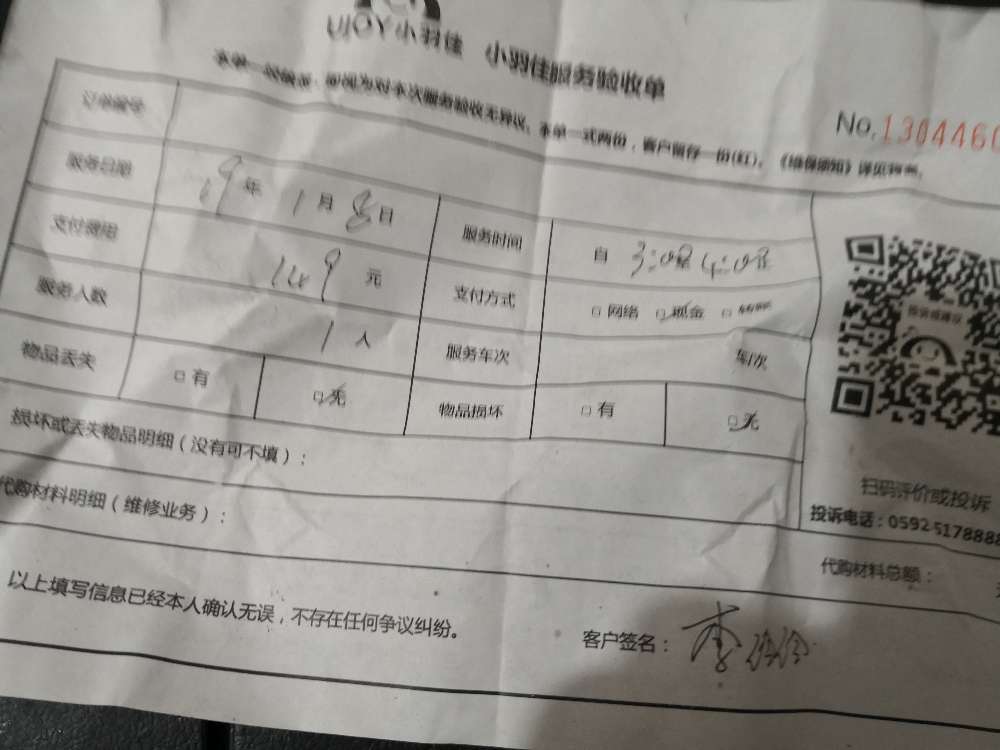 UJOY小羽佳 小羽佳服务验收单
本单一经签完,即视为对本次服务验收无异议。本单一式两份,客户留存一份(红)。《维保须知》详见背面。
No.1304460
订单编号
服务日期 19年1月8日 服务时间 自 3:00至4:00止
支付费用 149元 支付方式 □网络 □现金 □
服务人数 1人 服务车次 车次
物品丢失 □有 □无 物品损坏 □有 □无
投诉或建议
损坏或丢失物品明细(没有可不填):
扫码评价或投诉
代购材料明细(维修业务):
投诉电话:0592-5178888
代购材料总额:
以上填写信息已经本人确认无误,不存在任何争议纠纷。
客户签名:李